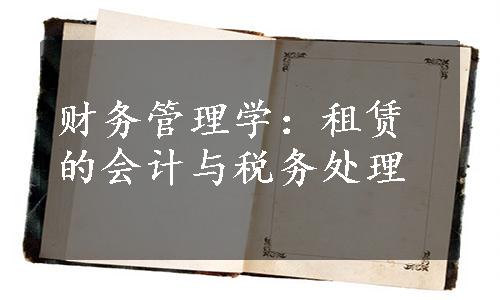 财务管理学：租赁
的会计与税务处理